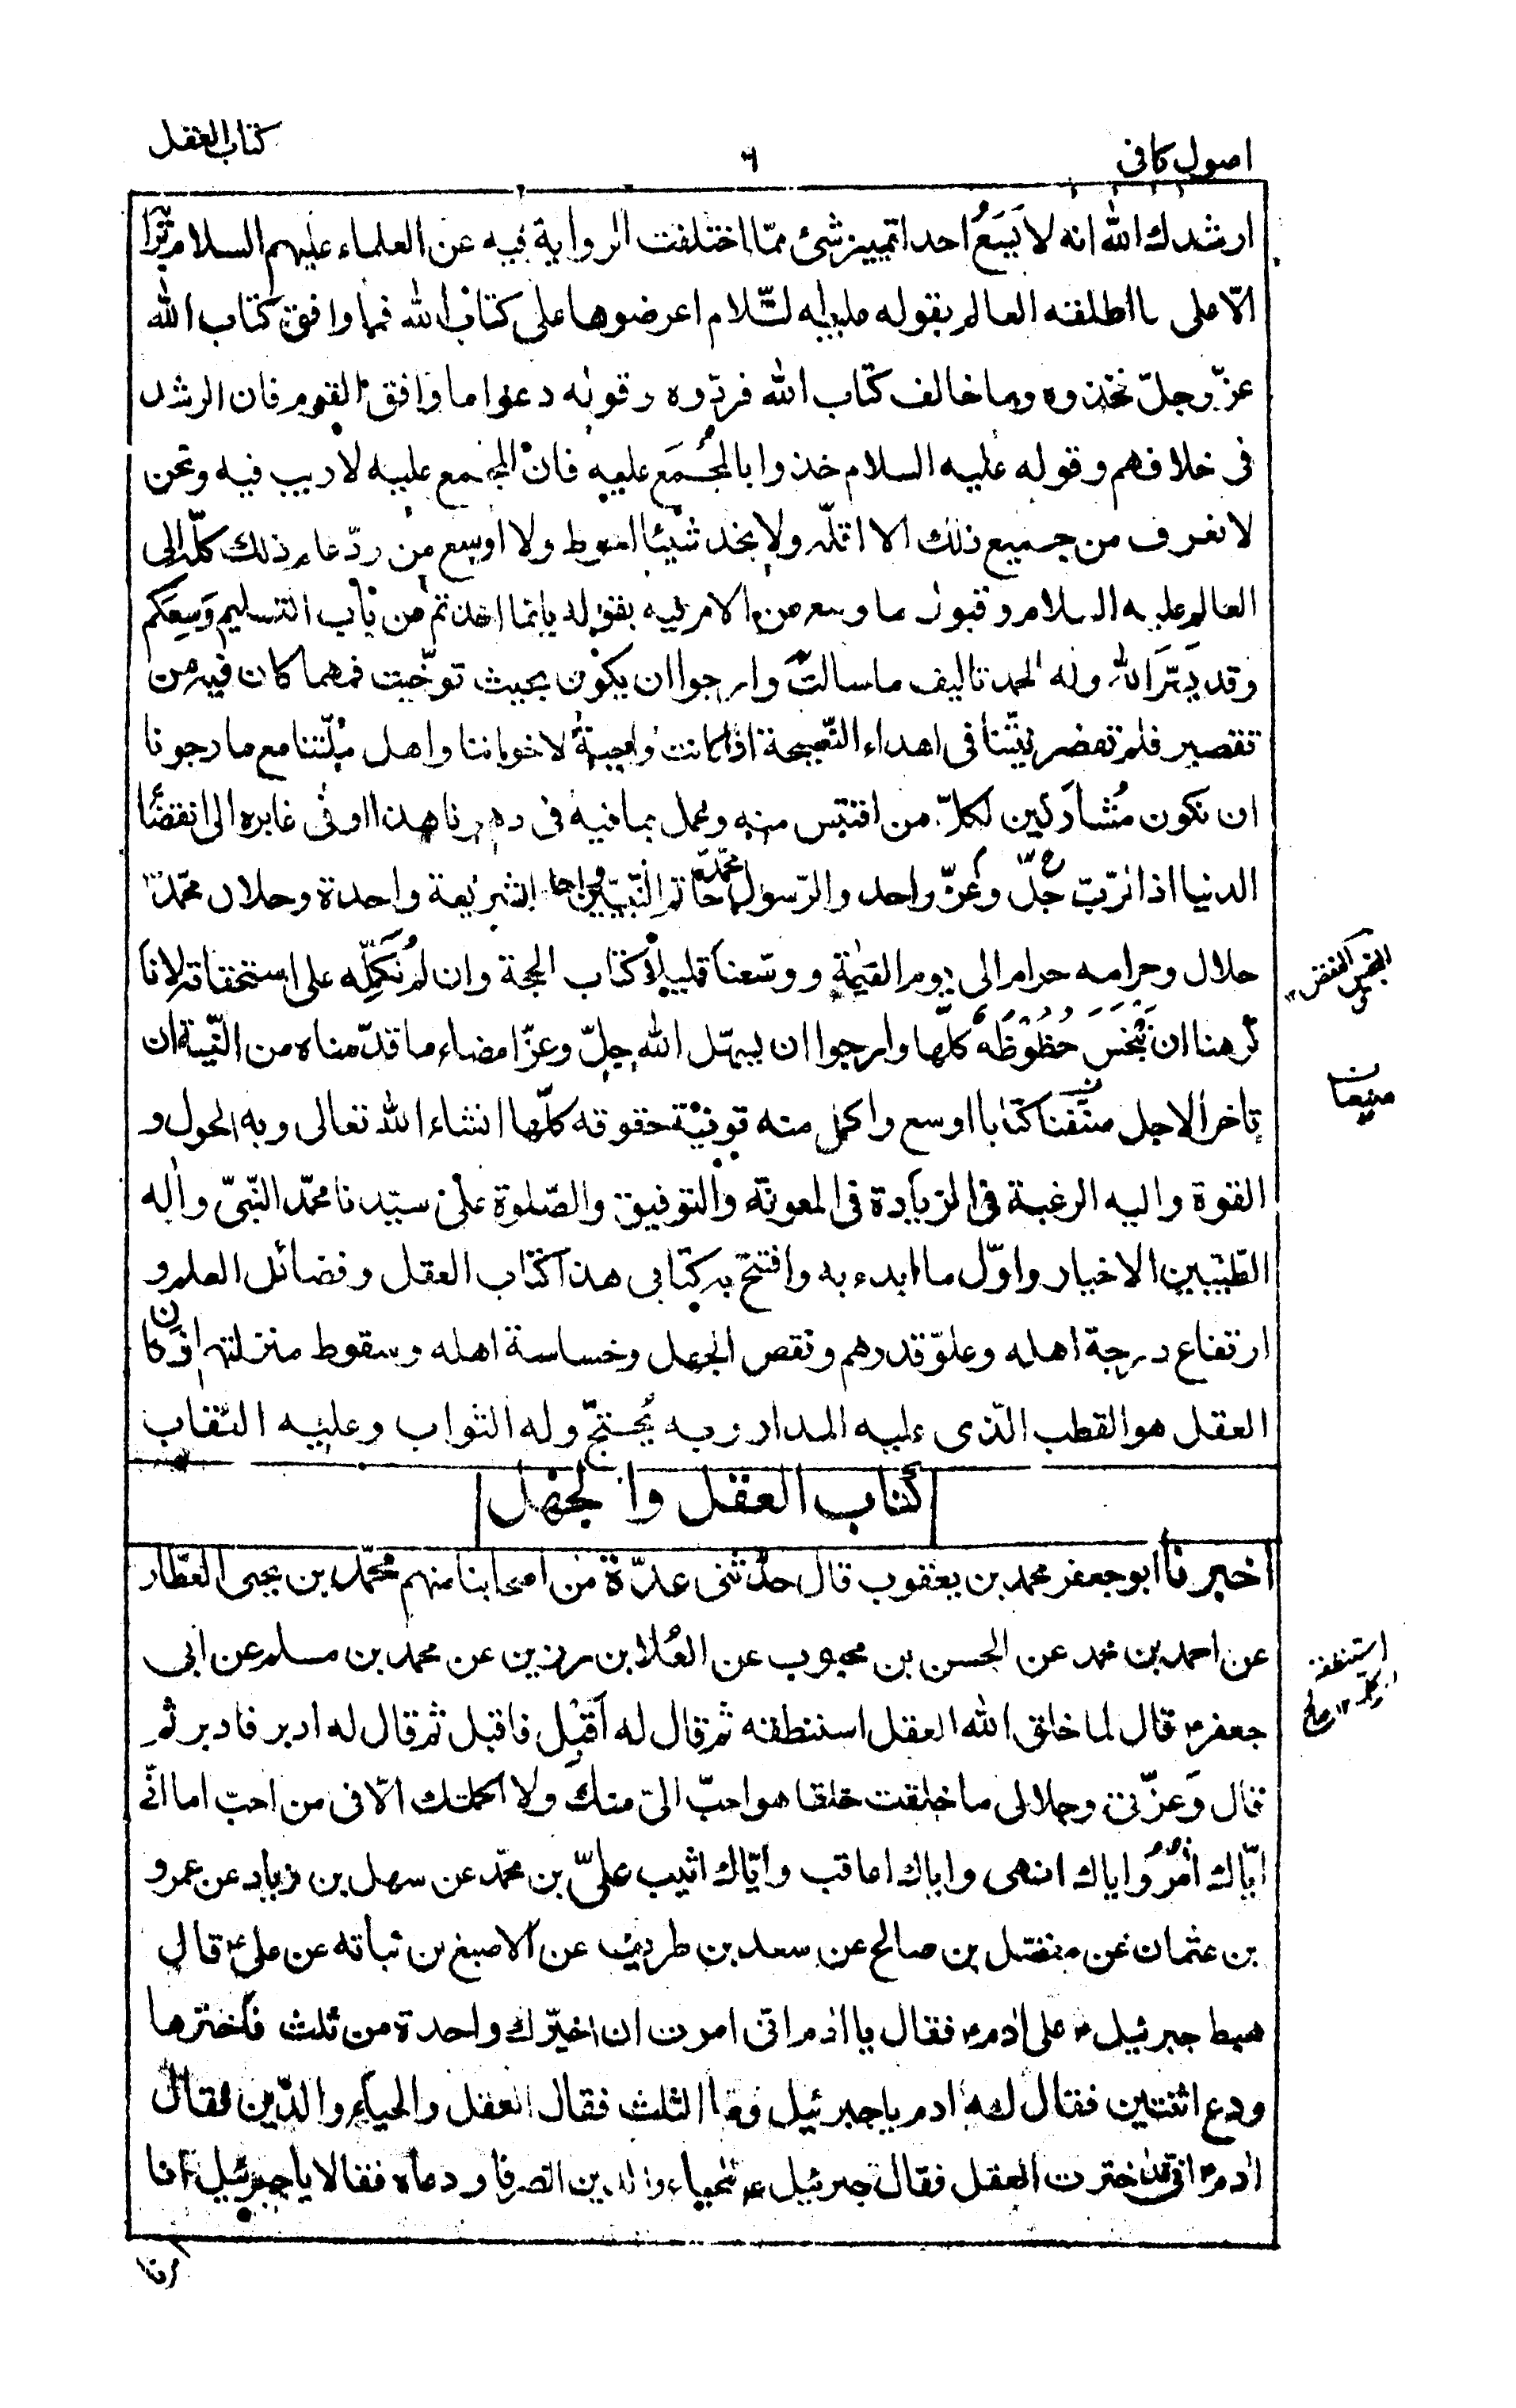 اصول كافى
٦
كتاب العقل
ارشدك الله انه لا يَسَعُ احدا تمييز شئ ممّا اختلفت الرواية فيه عن العلماء عليهم السلام برأيه
الّا على ما اطلقه العالم بقوله عليه السّلام اعرضوها على كتاب الله فما وافق كتاب الله
عزّ وجلّ فخذوه وما خالف كتاب الله فردّوه وقوله دعوا ما وافق القوم فان الرشد
فى خلافهم وقوله عليه السلام خذوا بالمُجمَع عليه فان المجمع عليه لا ريب فيه ونحن
لا نعرف من جميع ذلك الا اقلّه ولا نجد شيئا احوط ولا اوسع من ردّ علم ذلك كلّه الى
العالم عليه السلام وقبول ما وسع من الامر فيه بقوله بايّما اخذتم من باب التسليم وَسِعَكم
وقد يَسّرَ الله وله الحمد تاليف ما سالتَ وارجوا ان يكون بحيث توخّيت فمهما كان فيه من
تقصير فلم تقصر نيّتنا فى اهداء النّصيحة اذ كانت واجبةً لاخواننا واهل ملّتنا مع ما رجونا
ان نكون مُشاركين لكلّ من اقتبس منه وعمل بما فيه فى دهرنا هذا او فى غابره الى انقضاء
الدنيا اذ الرّبّ جلّ وعزّ واحد والرّسول محمّد خاتم النّبيّين واحد والشريعة واحدة وحلال محمّد
حلال وحرامه حرام الى يوم القيٰمة ووسّعنا قليلا كتاب الحجة وان لم نُكَمِّله على استحقاقه لانا
كرهنا ان نَبْخَسَ حُظُوظَهُ كلّها وارجوا ان يسهّل الله جلّ وعزّ امضاء ما قدّمناه من النّيّة ان
تاخر الاجل صنّفنا كتابا اوسع واكمل منه توفيه حقوقه كلّها انشاء الله تعالى وبه الحول و
القوة واليه الرغبة فى الزيادة فى المعونة والتوفيق والصّلوة على سيّدنا محمّد النّبىّ واٰله
الطّيّبين الاخيار واوّل ما ابدء به وافتتح به كتابى هذا كتاب العقل وفضائل العلم و
ارتفاع درجة اهله وعلوّ قدرهم ونقص الجهل وخساسة اهله وسقوط منزلتهم اذ كان
العقل هو القطب الّذى عليه المدار وبه يُحتجّ وله الثواب وعليه العقاب
كتاب العقل والجهل
اخبرنا ابو جعفر محمد بن يعقوب قال حدّثنى عدّة من اصحابنا منهم محمّد بن يحيى العطّار
عن احمد بن محمد عن الحسن بن محبوب عن العلا بن رزين عن محمد بن مسلم عن ابى
جعفر ع قال لما خلق الله العقل استنطقه ثم قال له اَقبِل فاقبل ثم قال له ادبر فادبر ثم
قال وَعزّتى وجلالى ما خلقت خلقا هو احبّ الىّ منك ولا اكملتك الّا فى من احب اما انّى
ايّاك اٰمُرُ واياك انهى واياك اعاقب وايّاك اثيب علىّ بن محمّد عن سهل بن زياد عن عمرو
بن عثمان عن مفضّل بن صالح عن سعد بن طريف عن الاصبغ بن نباته عن على ع قال
هبط جبرئيل ع على اٰدم ع فقال يا اٰدم انّى امرت ان اخيّرك واحدة من ثلث فاخترها
ودع اثنتين فقال له اٰدم يا جبرئيل وما الثلث فقال العقل والحياء والدّين فقال
اٰدم ع انى قد اخترت العقل فقال جبرئيل ع للحياء والدين انصرفا ودعاه فقالا يا جبرئيل انا
البخس النقص
صنيعان
استنطقه
اى كلّمه ١٢ صالح
امرنا